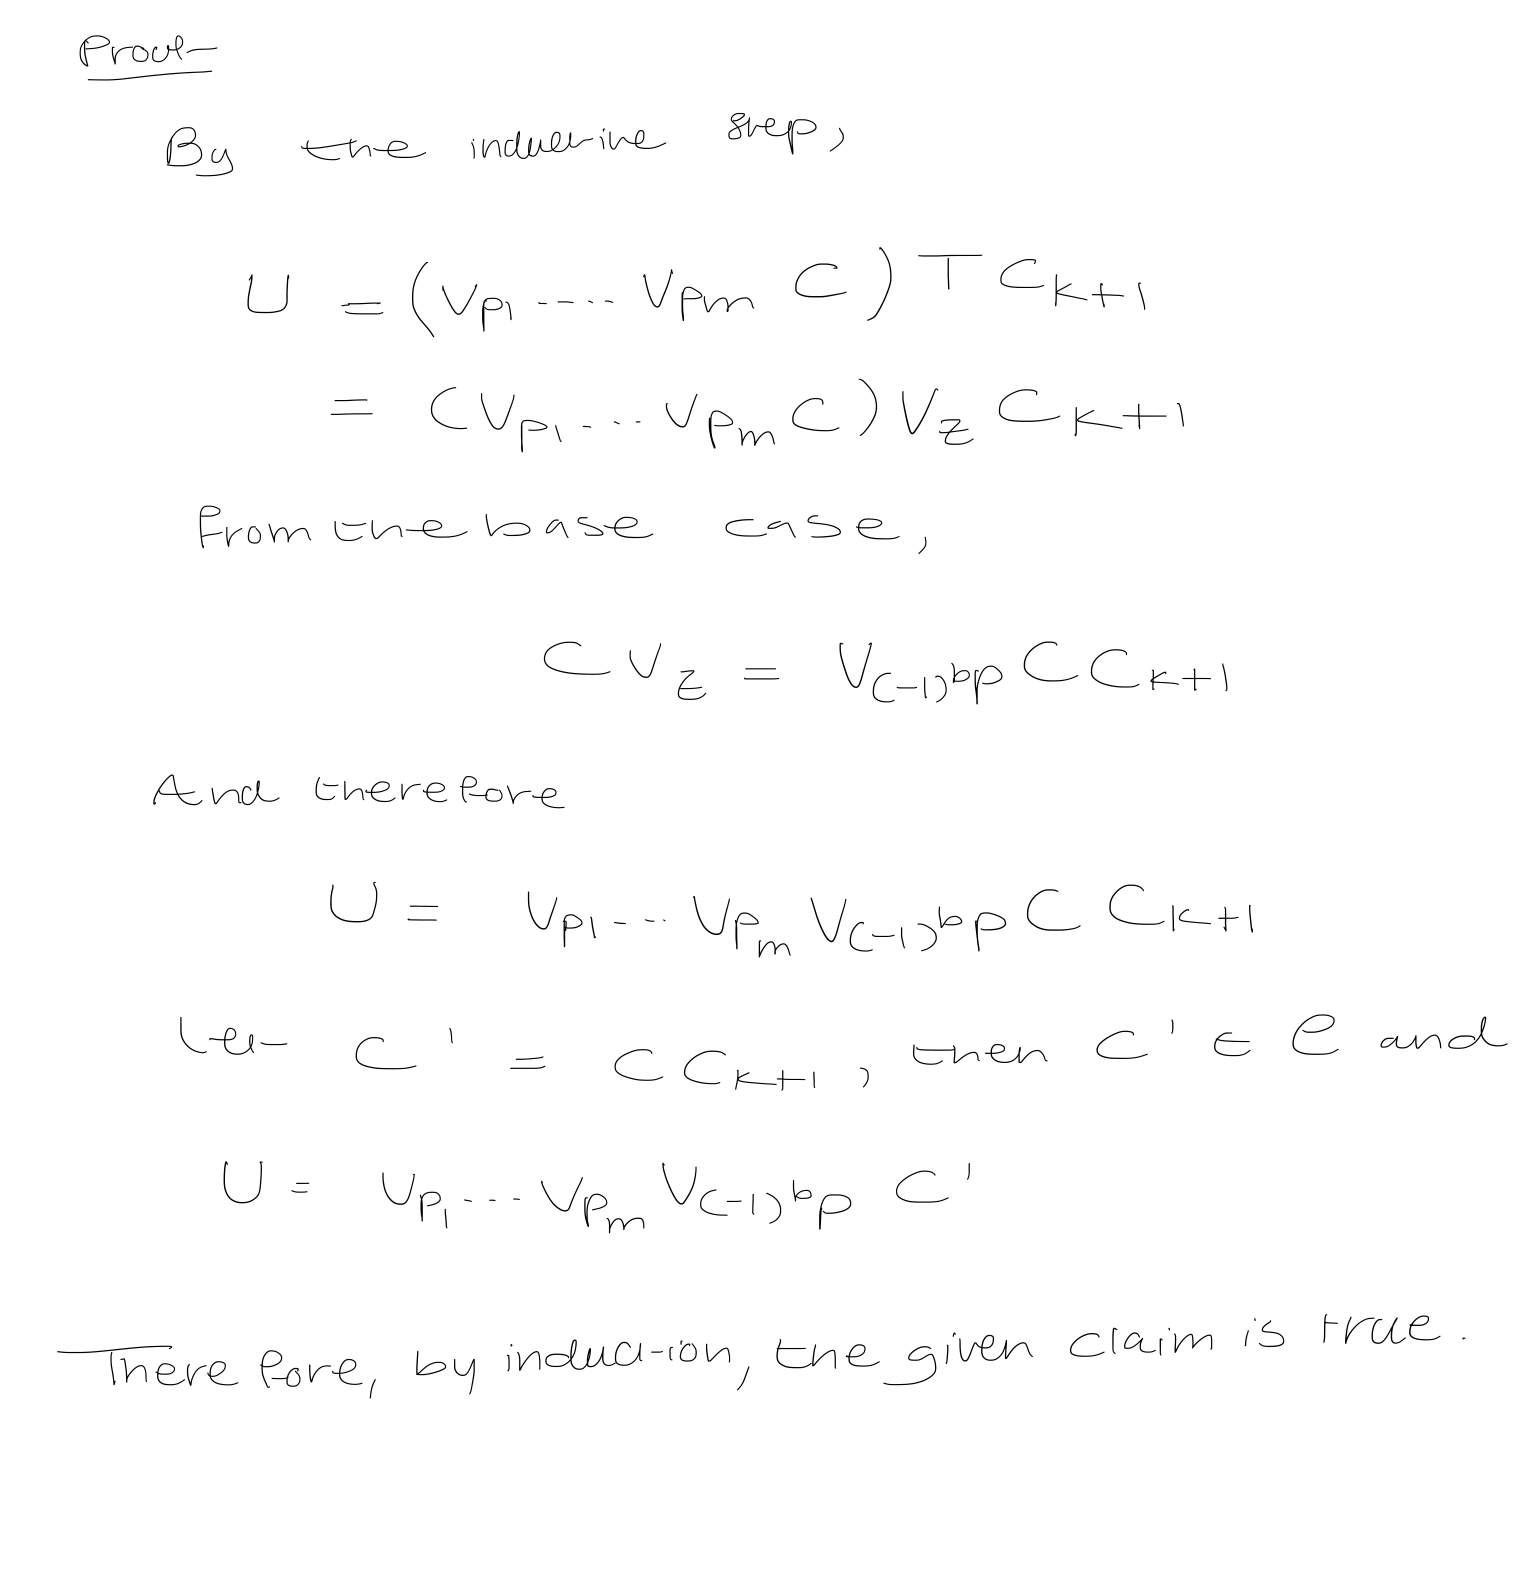 Proof
By the inductive step,
U = (V_{P_1} ..... V_{P_m} C) T C_{K+1}
= (V_{P_1} .... V_{P_m} C) V_Z C_{K+1}
From the base case,
C V_Z = V_{(-1)^b P} C C_{K+1}
And therefore
U = V_{P_1} .... V_{P_m} V_{(-1)^b P} C C_{K+1}
Let C' = C C_{K+1}, then C' ∈ C and
U = V_{P_1} .... V_{P_m} V_{(-1)^b P} C'
Therefore, by induction, the given claim is true.